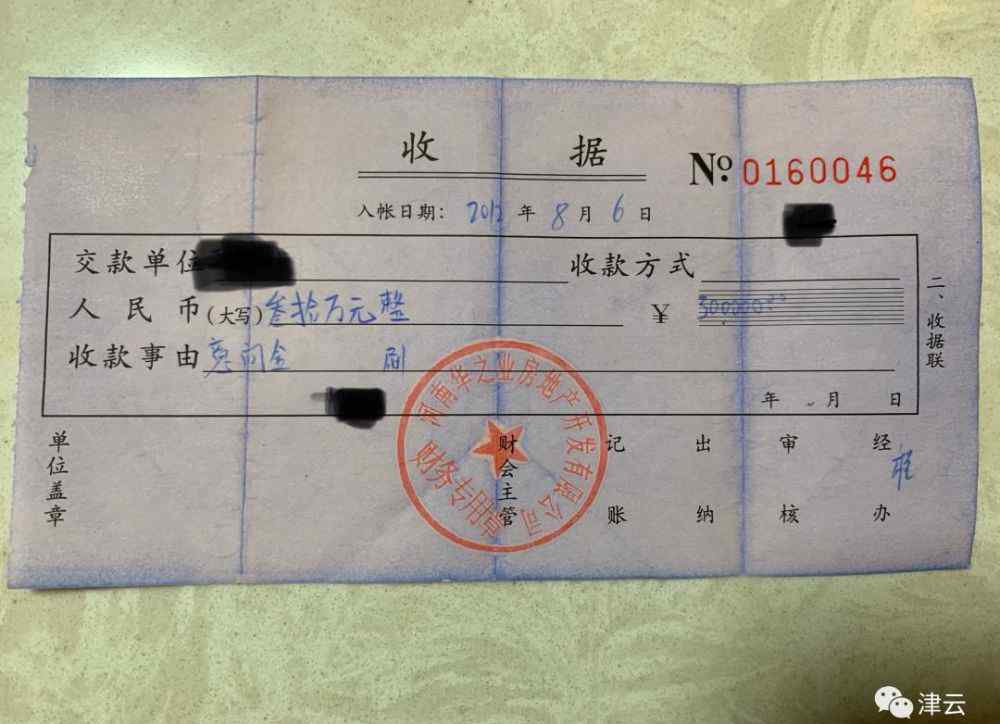 收 据
No. 0160046
入帐日期: 2012 年 8 月 6 日
交款单位 收款方式
人民币(大写)叁拾万元整 ¥ 300000.00
收款事由 刷
年 月 日
二、收据联
河南华之业房地产开发有限公司
财务专用章
单位盖章 财会主管 记账 出纳 审核 经办
津云